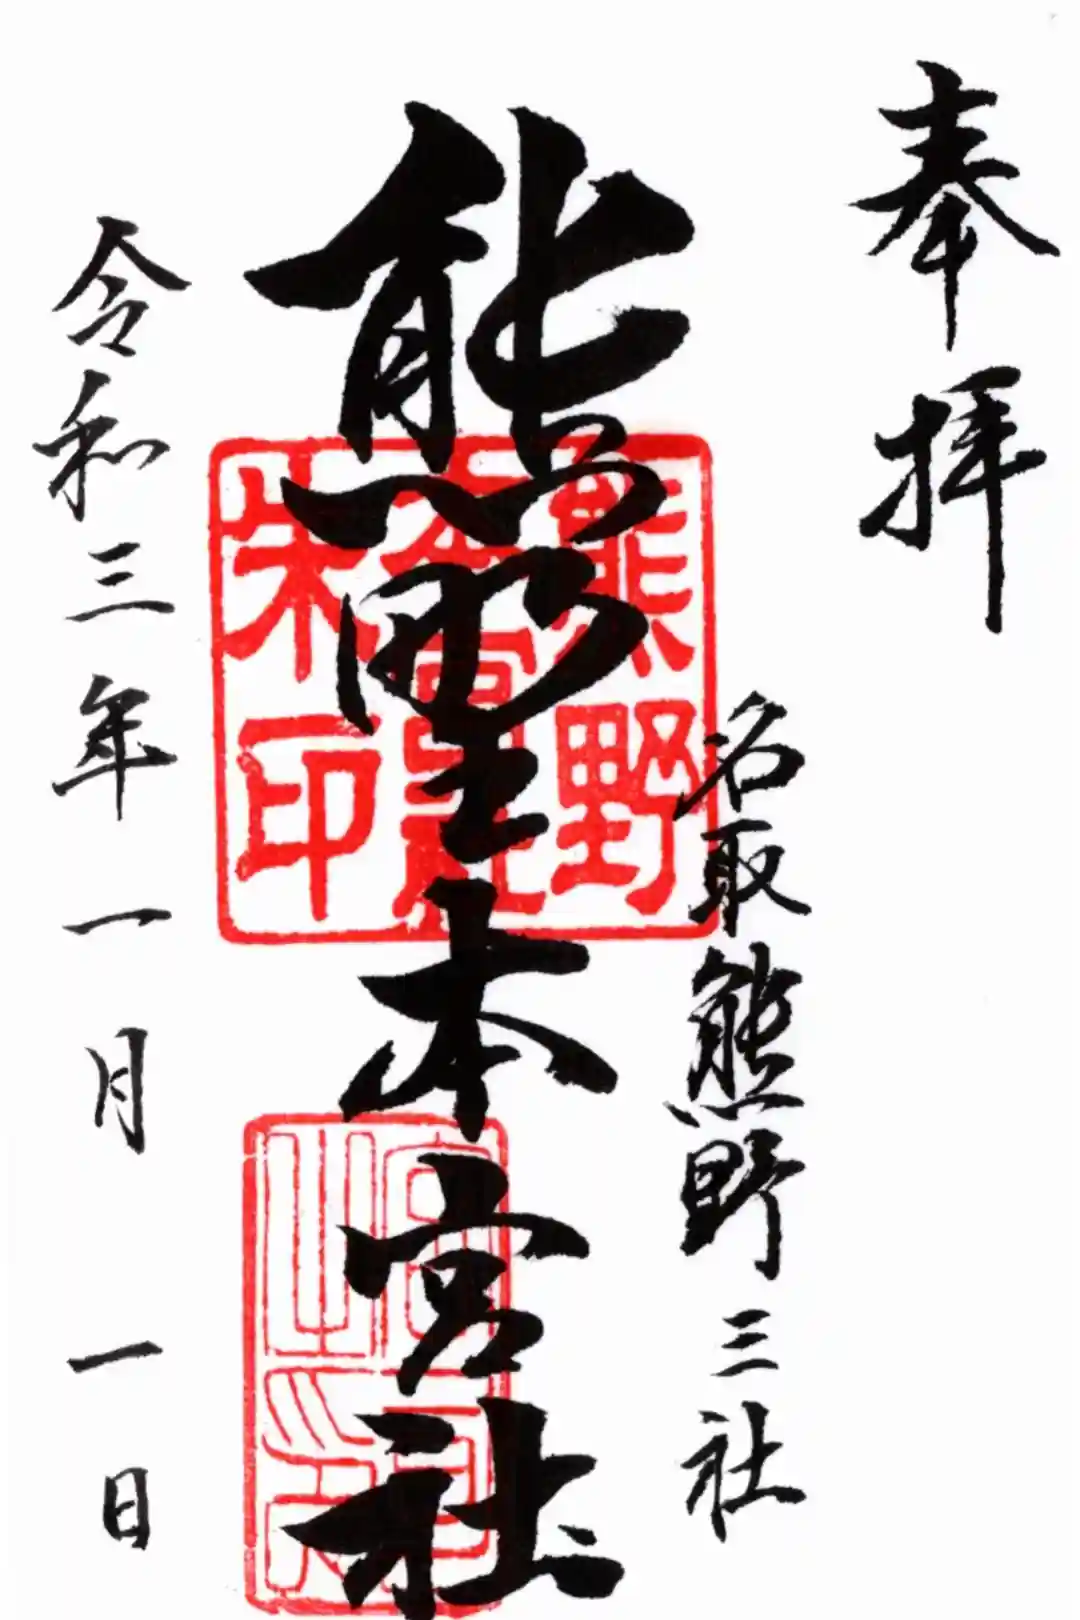 奉拝
名取熊野三社
熊野本宮社
熊野
本宮社
朱印
令和三年一月一日